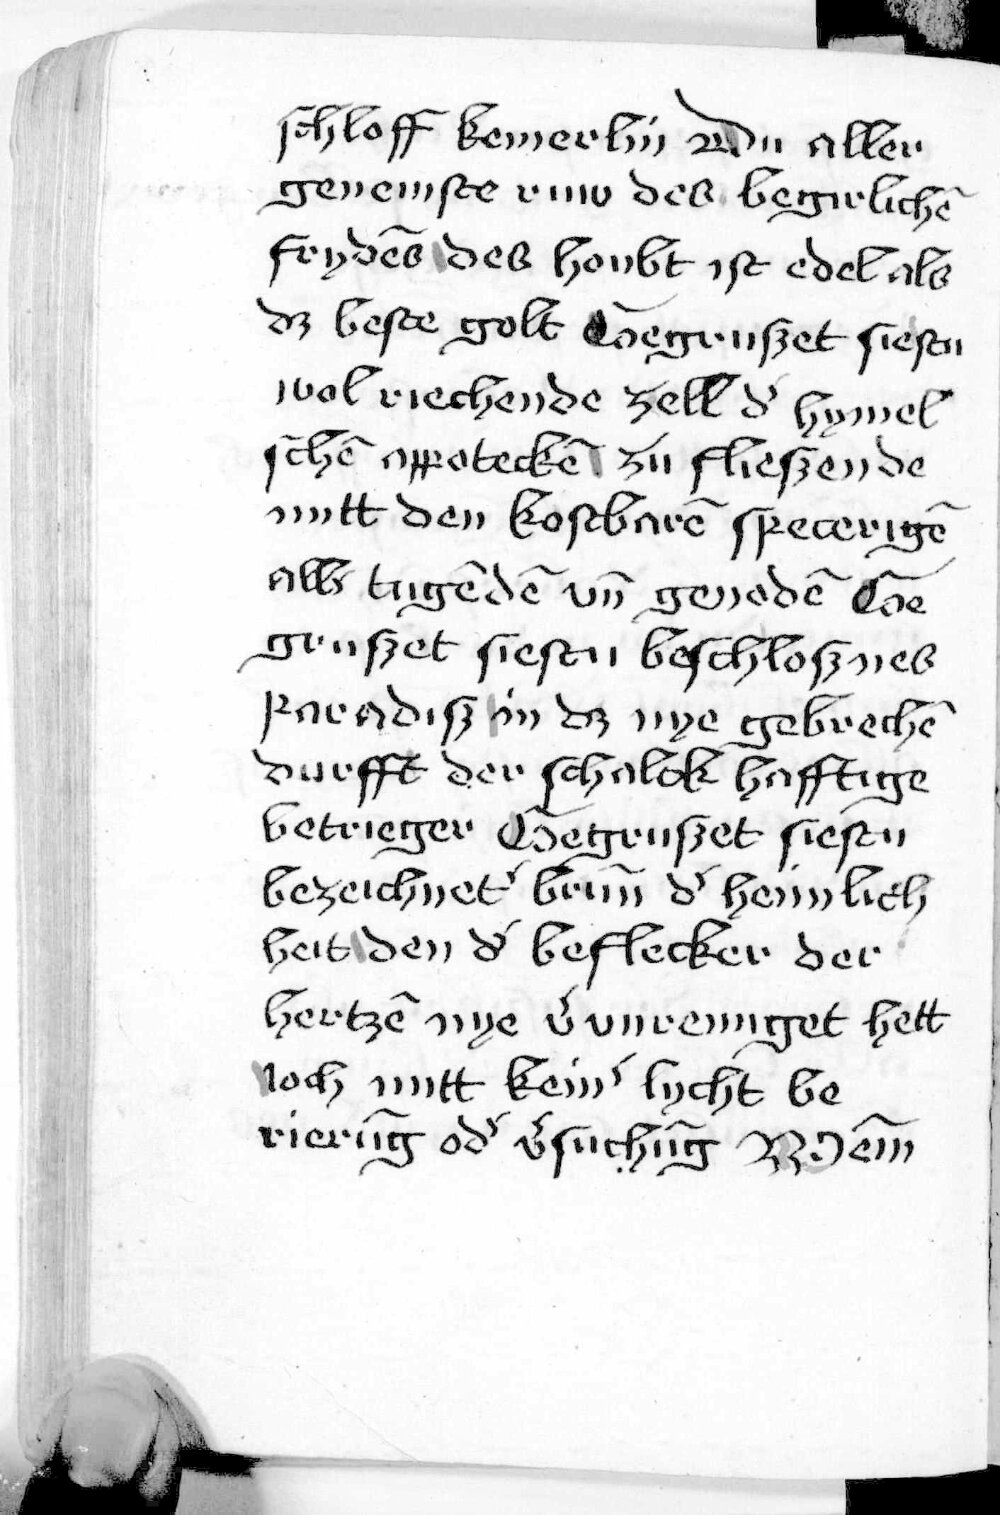 schloff kemerlin du aller
genemste ruw des begirlichē
frydēs des houbt ist edel als
dz beste golt Gegruszet siestu
wol riechende zell d' hymel
schē appoteckē zu flieszende
mitt den kostbarē specerigē
alls tugēdē vn̄ genodē Ge
gruszet siestu beschlosznes
paradisz in dz nye gebrechē
durfft der schalck hafftige
betrieger Gegruszet siestu
bezeichnet' brun̄ d' heimlich
heit den d' beflecker der
hertzē nye v' vnreiniget hett
noch mitt kein' lycht be
rierūg od' v'suchūg Amē